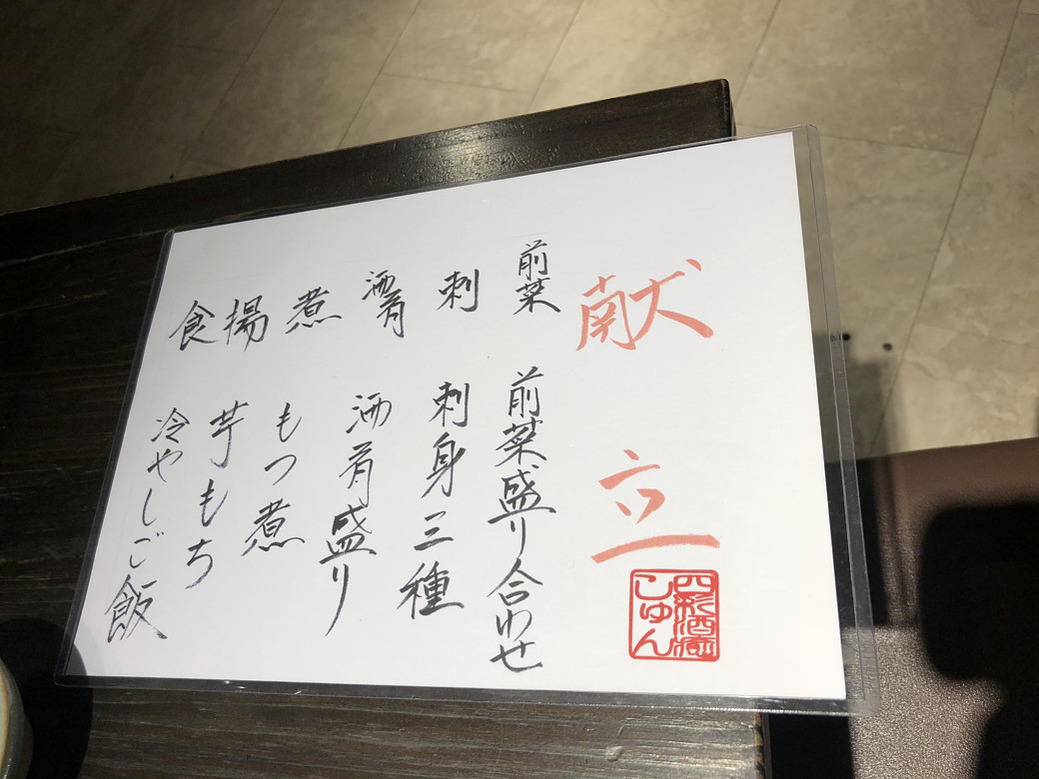 献立
四彩酒癒
しゅん
前菜 前菜盛り合わせ
刺 刺身三種
酒肴 酒肴盛り
煮 もつ煮
揚 芋もち
食 冷やしご飯